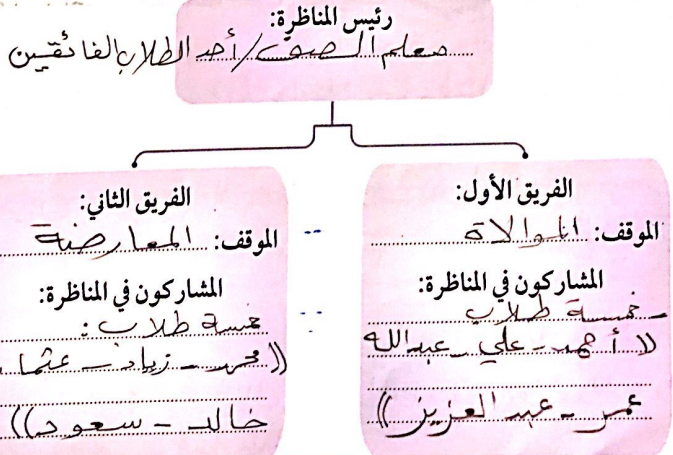 رئيس المناظرة:
معلم الصف / أحد الطلاب الفائقين
الفريق الأول:
الموقف: الموالاة
المشاركون في المناظرة:
- خمسة طلاب
(( أحمد - علي - عبدالله
عمر - عبد العزيز ))
الفريق الثاني:
الموقف: المعارضة
المشاركون في المناظرة:
خمسة طلاب:
(( محمد - زياد - عثما
خالد - سعود ))